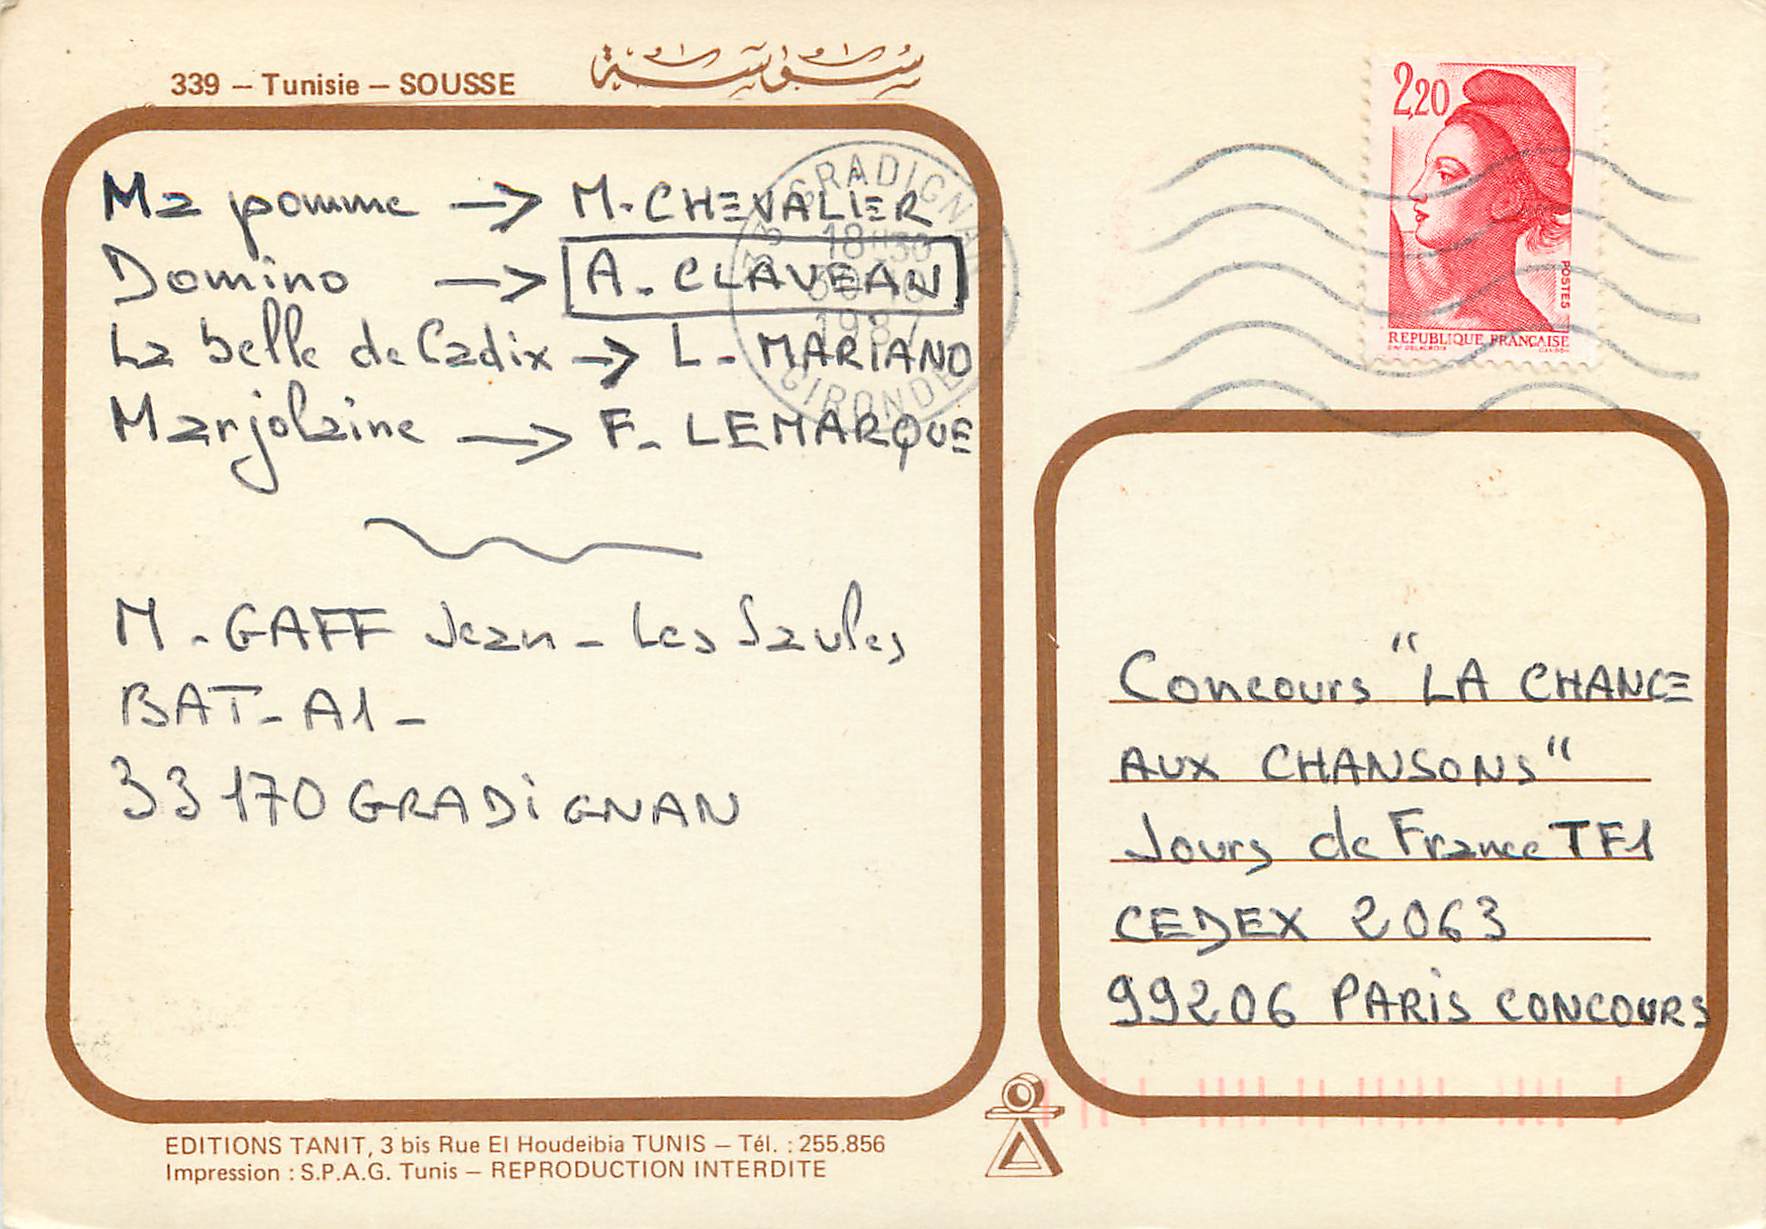 339 – Tunisie – SOUSSE سوسة
Ma pomme → M. CHEVALIER
Domino → A. CLAVEAN
La belle de Cadix → L. MARIANO
Marjolaine → F. LEMARQUE
M. GAFF Jean - Les Saules
BAT- A1 -
33170 GRADiGNAN
EDITIONS TANIT, 3 bis Rue El Houdeibia TUNIS – Tél. : 255.856
Impression : S.P.A.G. Tunis – REPRODUCTION INTERDITE
33 GRADIGNAN
18 H 30
1987
GIRONDE
2,20
POSTES
REPUBLIQUE FRANÇAISE
Concours "LA CHANCE
AUX CHANSONS"
Jours de France TF1
CEDEX 2063
99206 PARiS CONCOURS